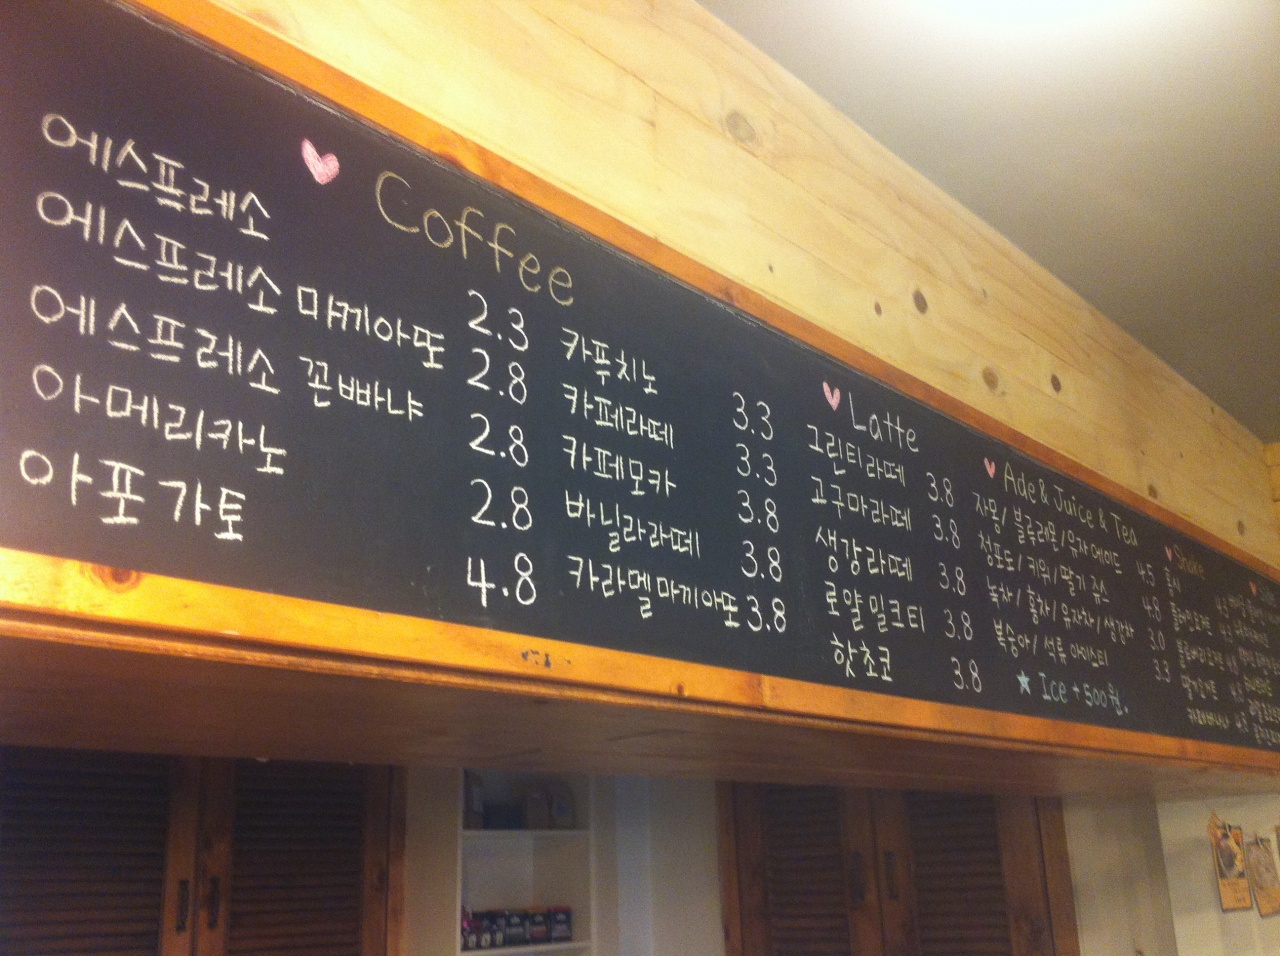 ♥ Coffee
에스프레소 2.3
에스프레소 마끼아또 2.8
에스프레소 꼰빠냐 2.8
아메리카노 2.8
아포가토 4.8
카푸치노 3.3
카페라떼 3.3
카페모카 3.8
바닐라라떼 3.8
카라멜마끼아또 3.8
♥ Latte
그린티라떼 3.8
고구마라떼 3.8
생강라떼 3.8
로얄밀크티 3.8
핫초코 3.8
♥ Ade & Juice & Tea
자몽/블루레몬/유자에이드 4.5
청포도/키위/딸기 쥬스 4.8
녹차/홍차/유자차/생강차 3.0
복숭아/석류 아이스티 3.3
★ Ice + 500원.
♥ Shake